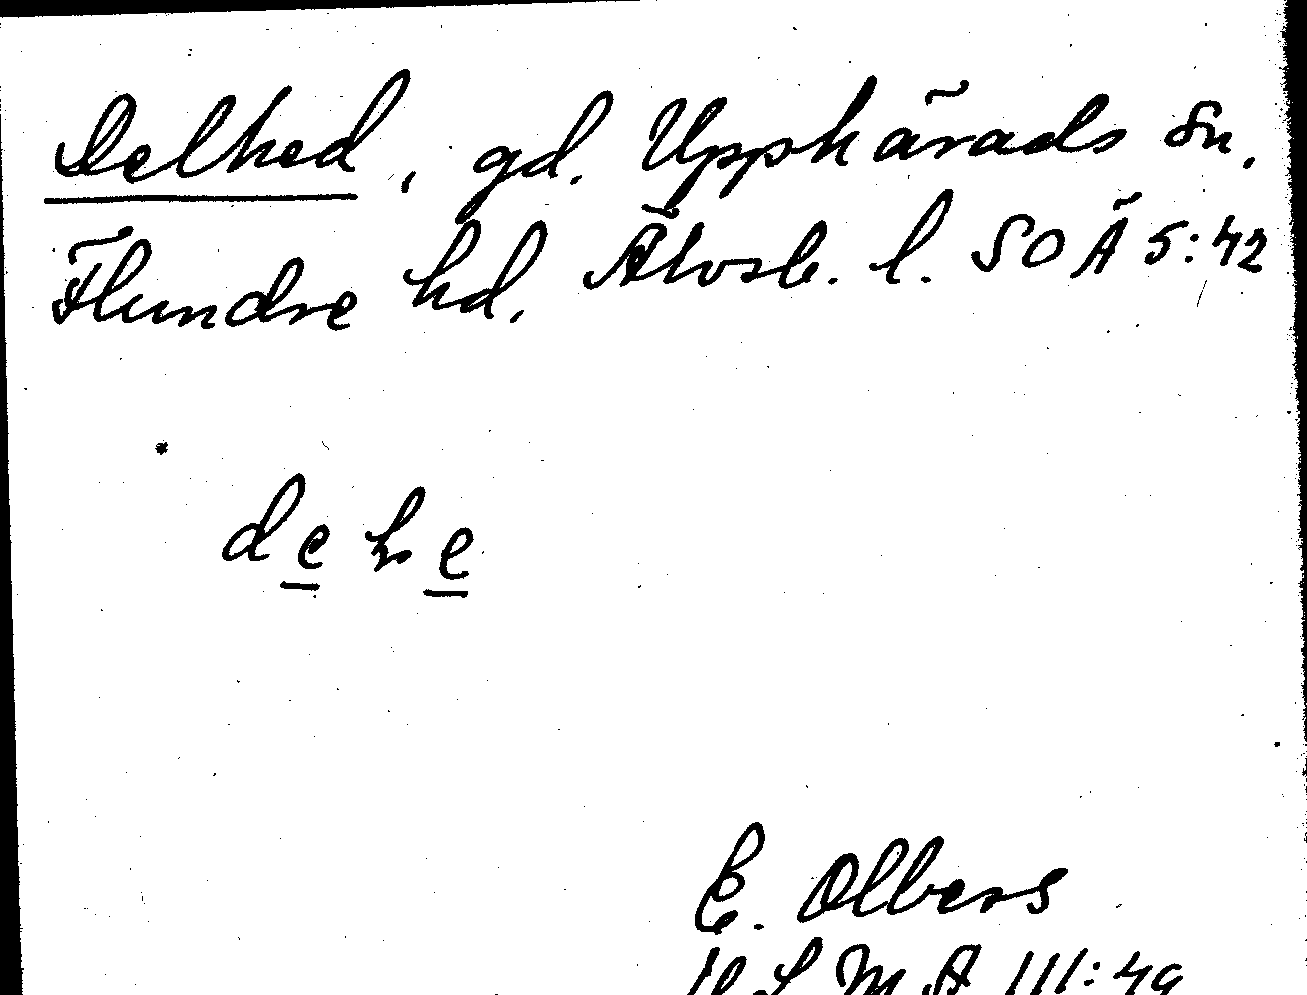 Delhed, gd. Upphärads sn.
Flundre hd. Älvsb. l. SOÄ 5:42
dehe
E. Olbers